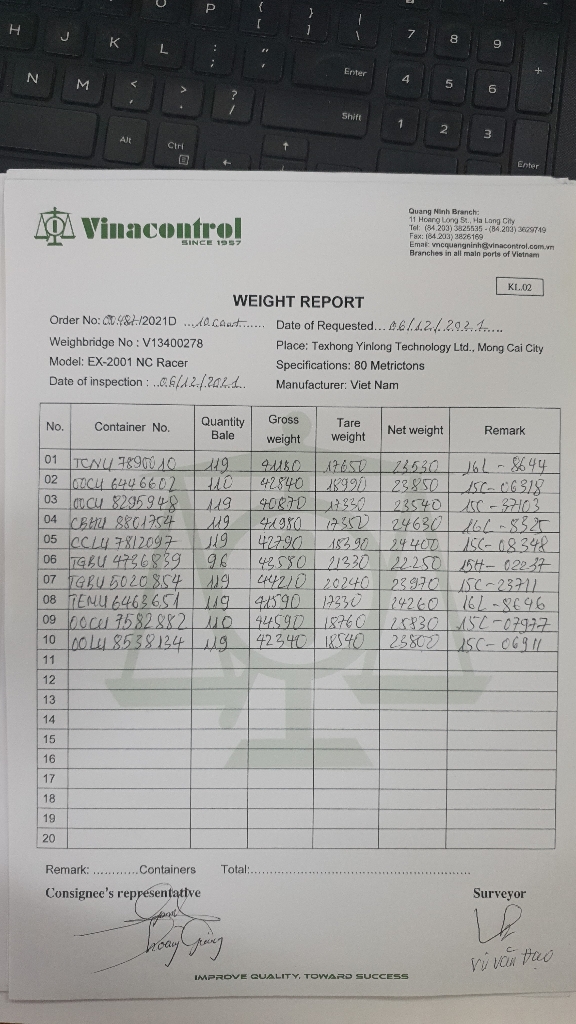 H J K L : ; " ' Enter 7 8 9 +
P { [ } ] | \
N M < , > . ? / Shift 4 5 6
Alt Ctrl 1 2 3 Enter
Vinacontrol
SINCE 1957
Quang Ninh Branch:
11 Hoang Long St., Ha Long City
Tel: (84.203) 3825535 - (84.203) 3629749
Fax: (84.203) 3826169
Email: vncquangninh@vinacontrol.com.vn
Branches in all main ports of Vietnam
KL.02
WEIGHT REPORT
Order No: /2021D 10 cont Date of Requested... 06/12/2021
Weighbridge No : V13400278 Place: Texhong Yinlong Technology Ltd., Mong Cai City
Model: EX-2001 NC Racer Specifications: 80 Metrictons
Date of inspection : 06/12/2021 Manufacturer: Viet Nam
No. Container No. Quantity Bale Gross weight Tare weight Net weight Remark
01 TCNU 7890010 119 41180 17650 23530 16L - 8644
02 OOCU 6446602 110 42840 18990 23850 15C - 06318
03 OOCU 8295948 119 40870 17330 23540 15C - 37103
04 CBHU 8801754 119 41980 17350 24630 16L - 8325
05 CCLU 7812097 119 42790 18390 24400 15C - 08348
06 TGBU 4736839 96 43580 21330 22250 15H - 02237
07 TGBU 5020854 119 44210 20240 23970 15C - 23711
08 TEMU 6463651 119 41590 17330 24260 16L - 8646
09 OOCU 7582882 110 44590 18760 25830 15C - 07977
10 OOLU 8538134 119 42340 18540 23800 15C - 06911
11
12
13
14
15
16
17
18
19
20
Remark: ............Containers Total:............
Consignee's representative Surveyor
Hoàng Giang Vũ Văn Đạo
IMPROVE QUALITY, TOWARD SUCCESS